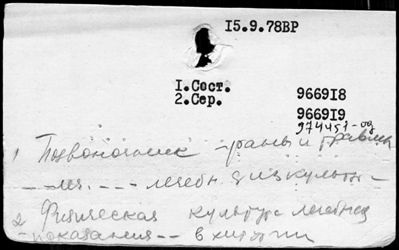 15.9.78ВР
1.Сост.
2.Сер.
966918
966919
974451-од
1 Позвоночник - раны и травмы
- леч. - - - лечебн физкульт -
2 Физическая культура лечебная
- показания - - в хирургии